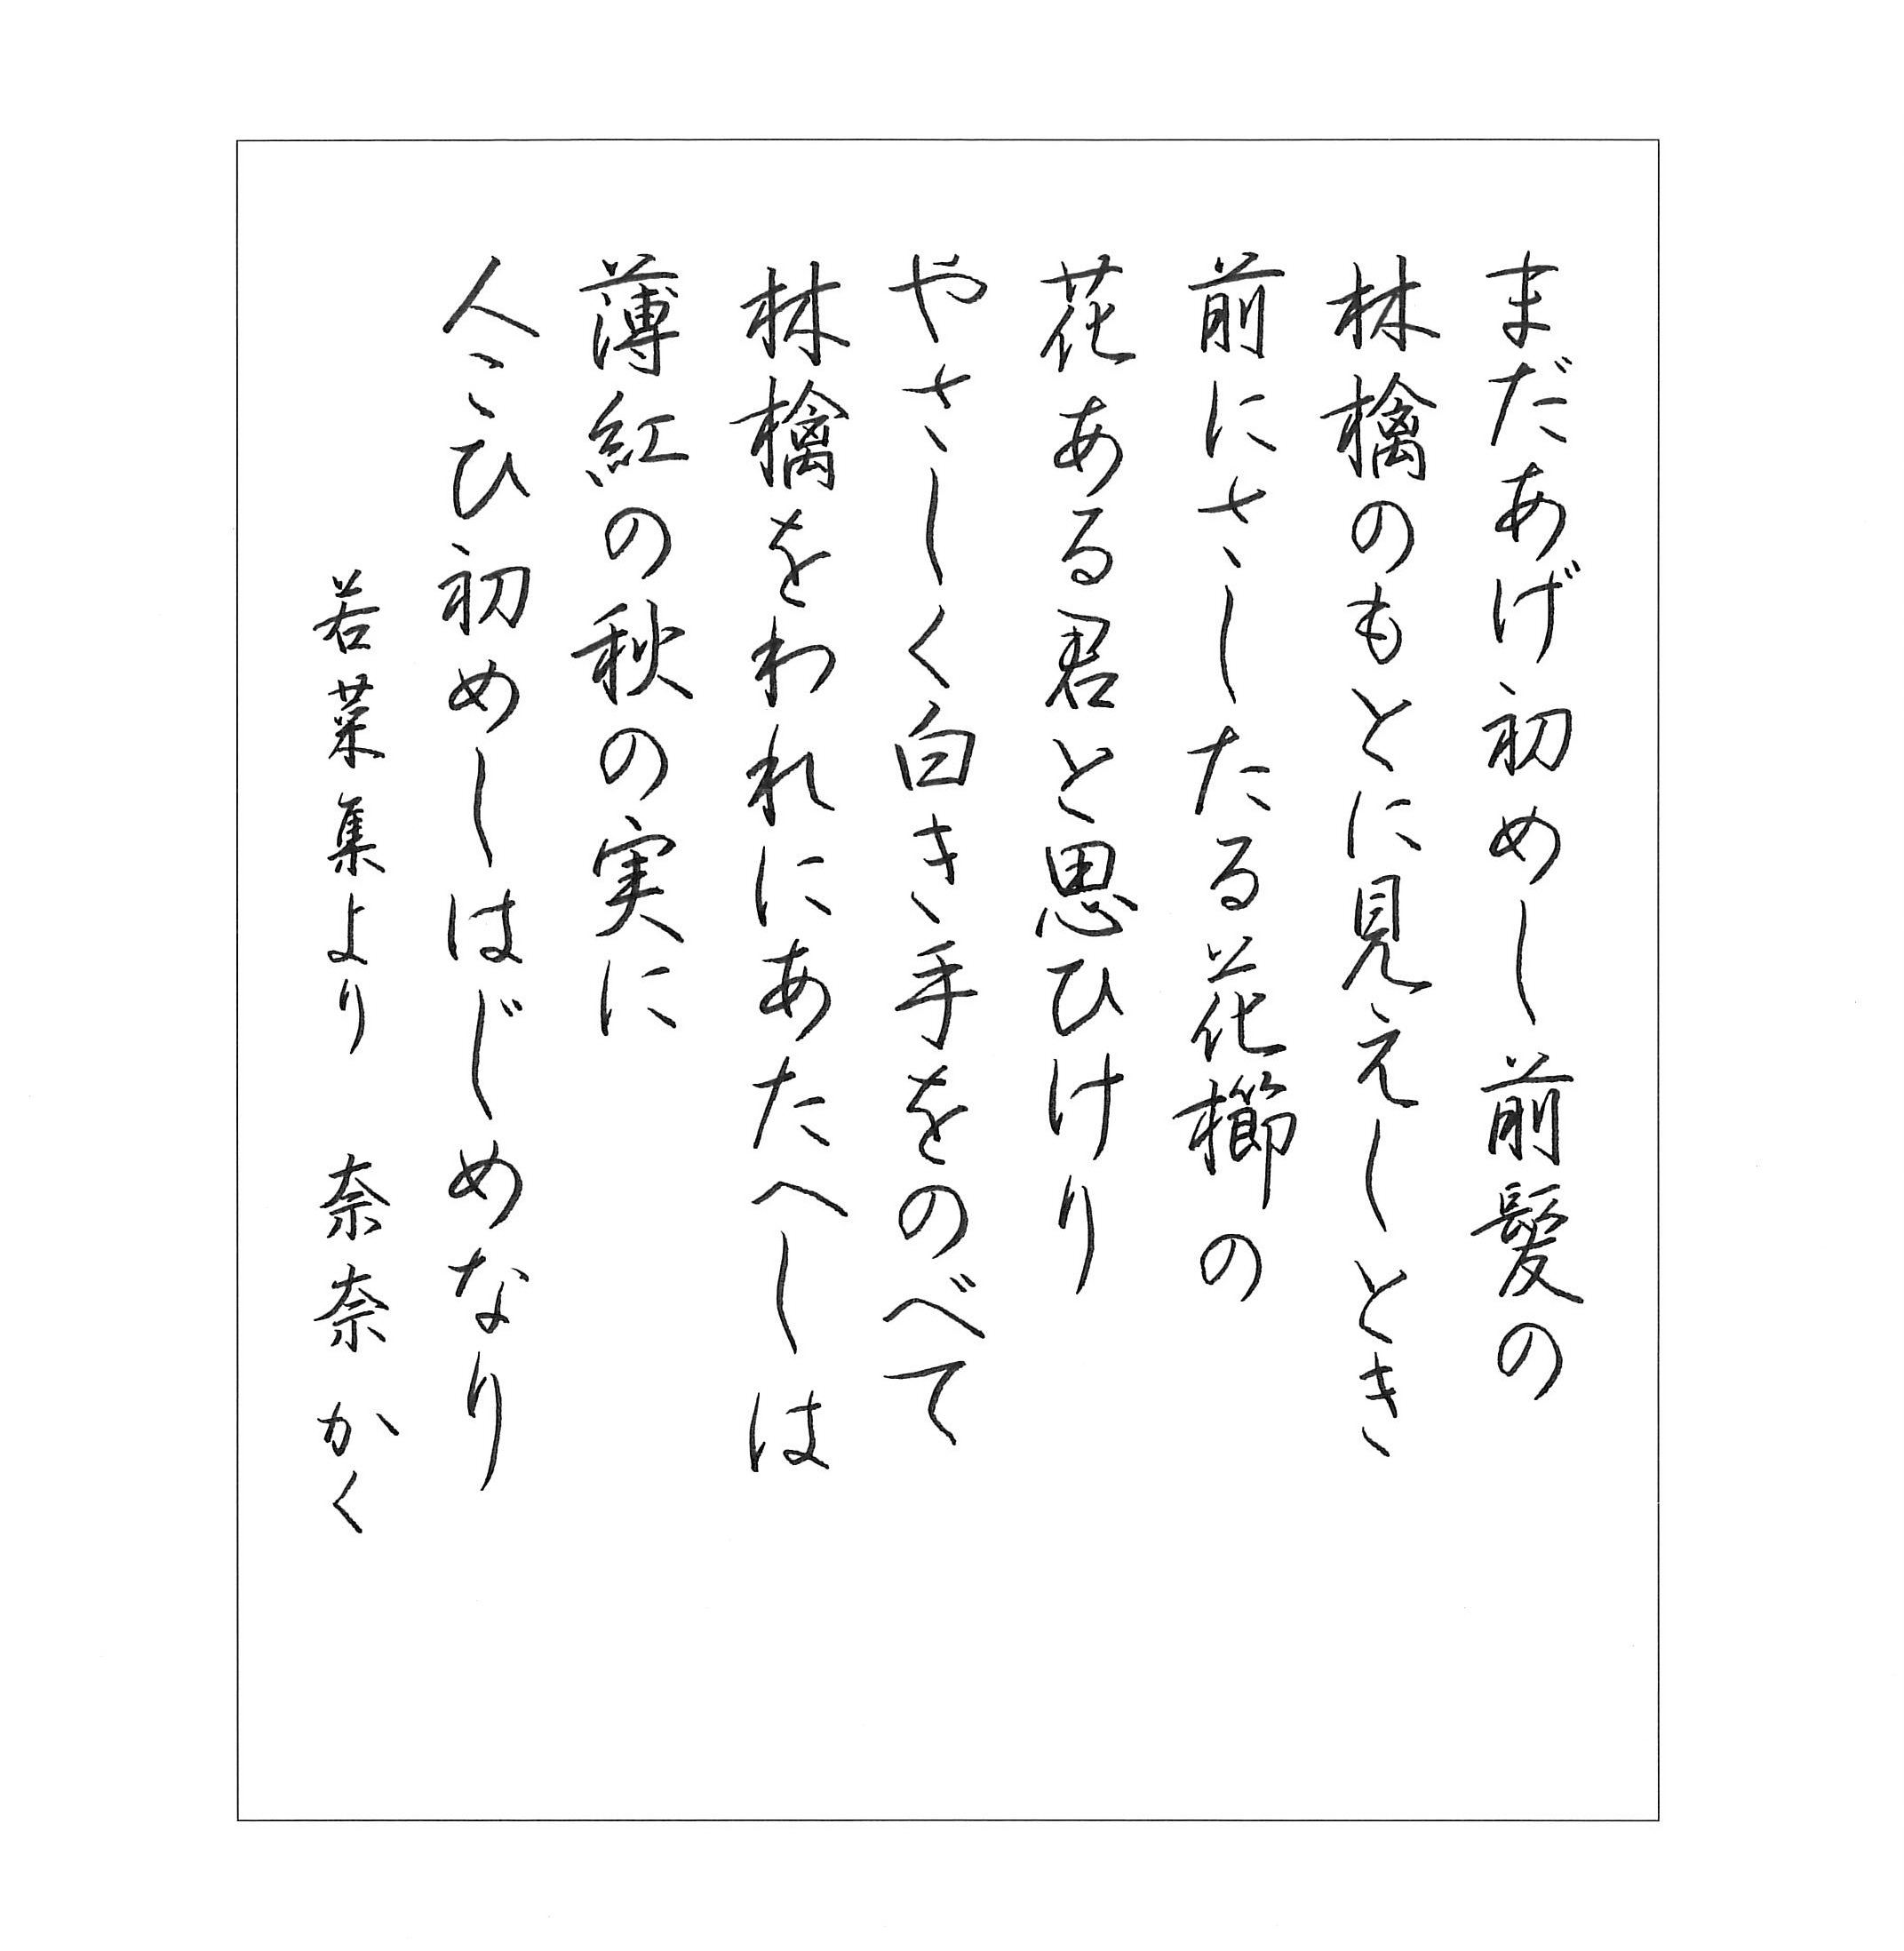 まだあげ初めし前髪の
林檎のもとに見えしとき
前にさしたる花櫛の
花ある君と思ひけり
やさしく白き手をのべて
林檎をわれにあたへしは
薄紅の秋の実に
人こひ初めしはじめなり
若菜集より 奈奈かく